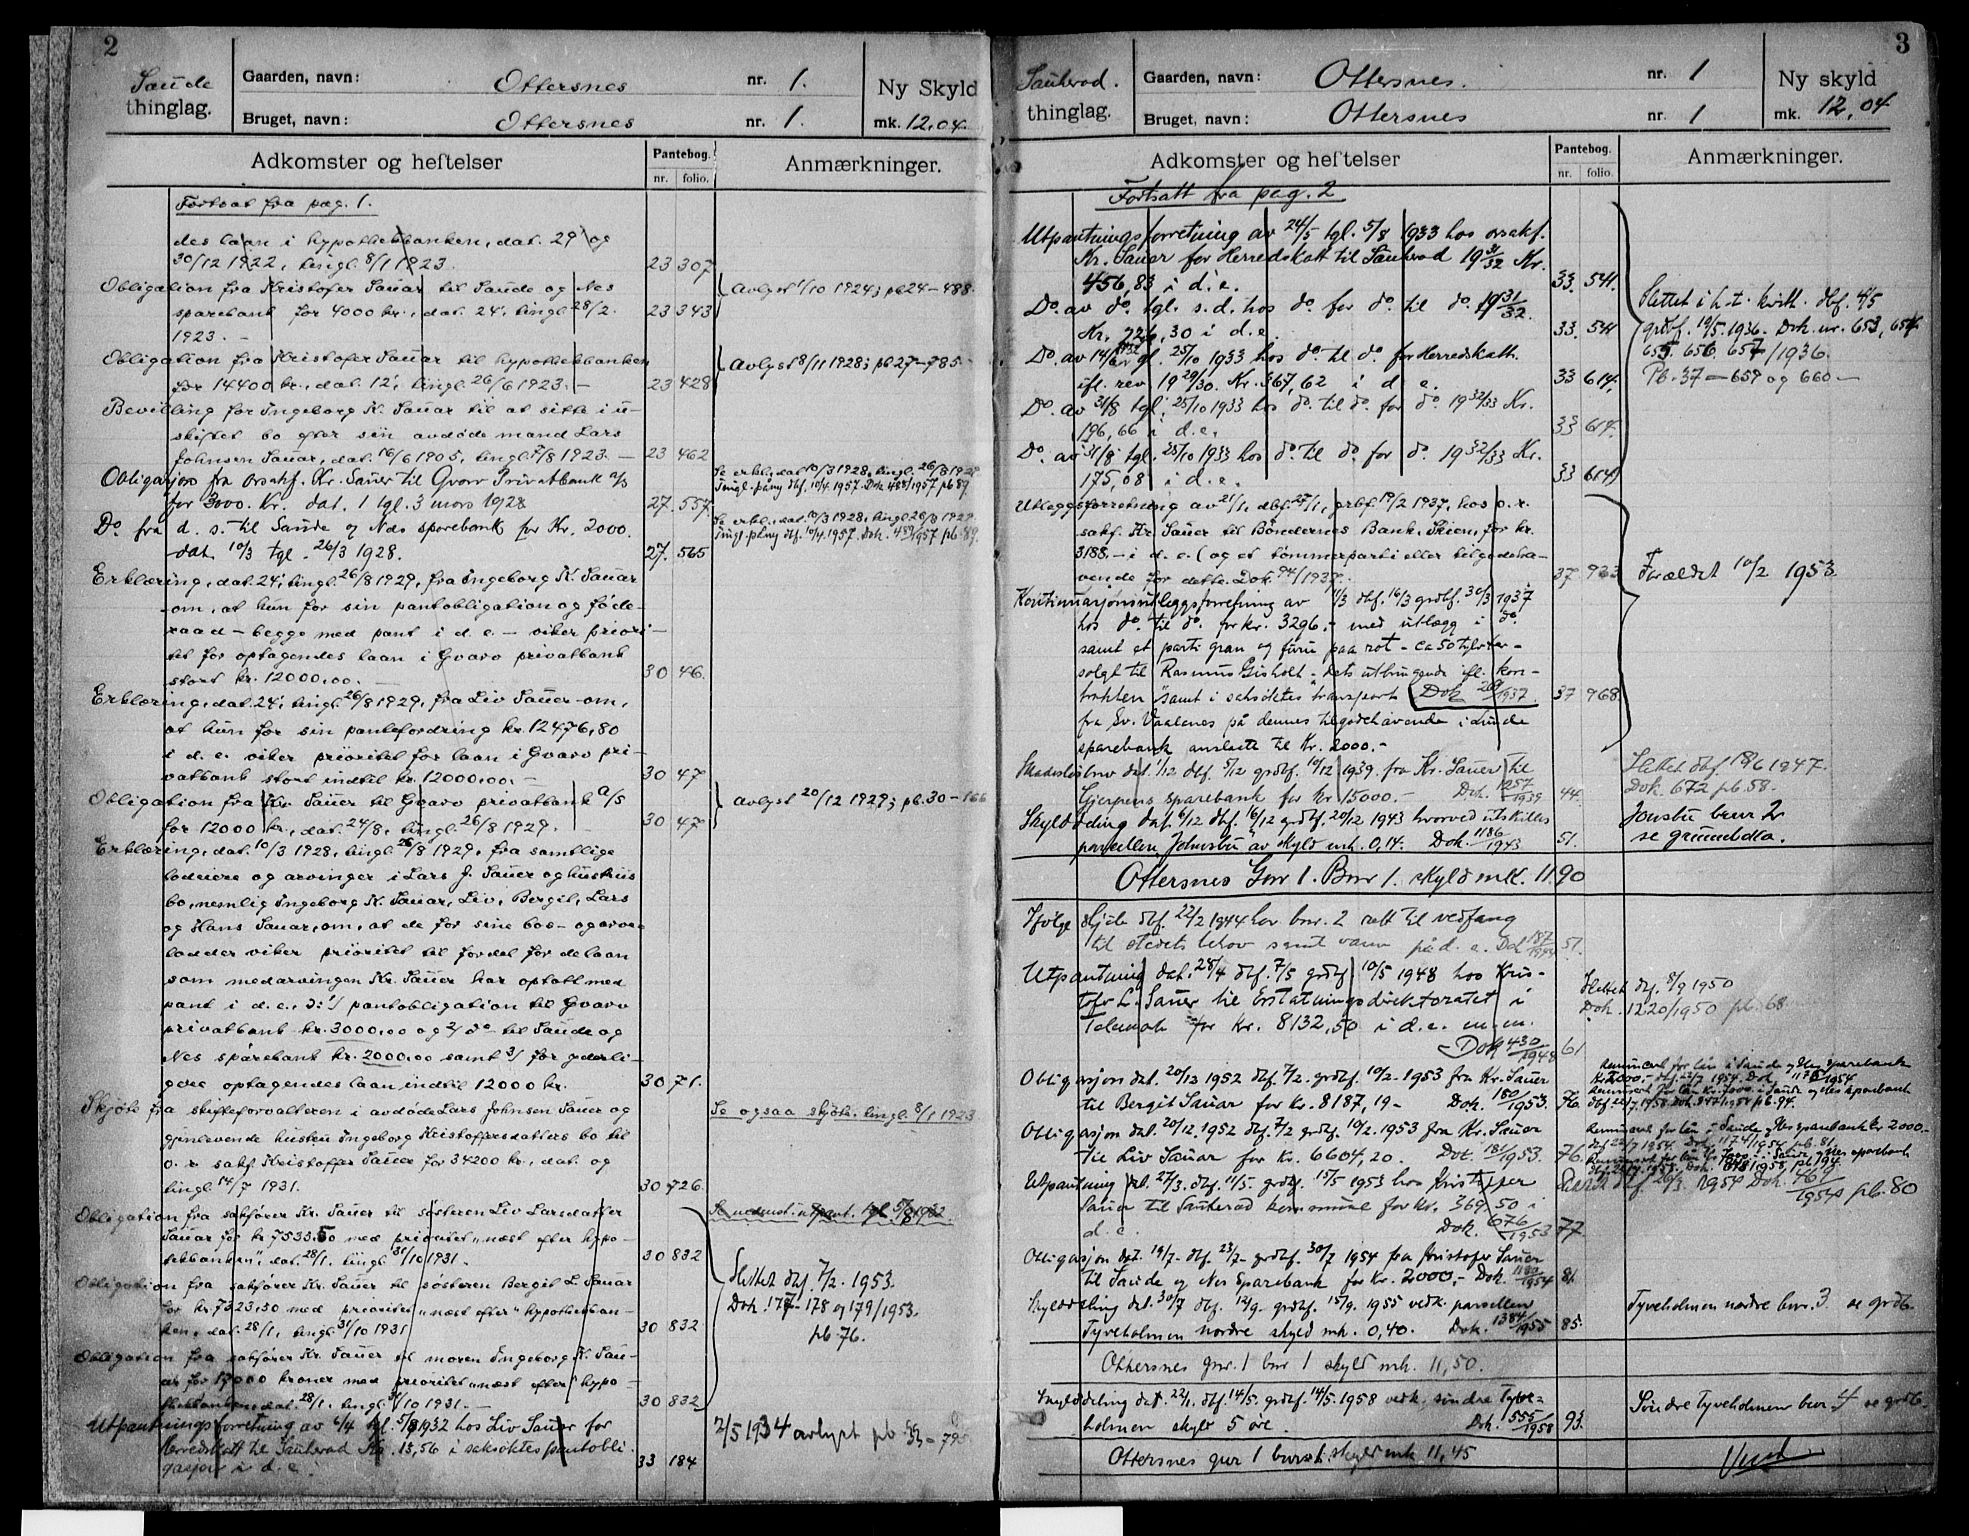 2
Saude
thinglag.
Gaarden, navn: Ottersnes nr. 1.
Bruget, navn: Ottersnes nr. 1.
Ny Skyld
mk. 12,04
Adkomster og heftelser
Pantebog.
nr. folio.
Anmærkninger.
Fortsat fra pag. 1.
des laan i hypothekbanken, dat. 29 og
30/12 1922, tingl. 8/1 1923. 23 307
Obligation fra Kristofer Sauar til Saude og Nes
sparebank for 4000 kr., dat. 24, tingl. 28/2 23 343
1923. -
Avlyst 1/10 1924; pb 24-488
Obligation fra Kristofer Sauar til hypothekbanken
for 14400 kr., dat. 12, tingl. 26/6 1923. - 23 428
Avlyst 8/11 1928; pb 27-785
Bevilling for Ingeborg K. Sauar til at sitte i u-
skiftet bo efter sin avdøde mand Lars
Johnsen Sauar, dat. 16/6 1905, tingl. 7/8 1923. - 23 462
Obligasjon fra orsakf. Kr. Sauer til Gvarv Privatbank a/s
for 3000. Kr. dat. 1 tgl. 3 mars 1928 27. 557.
Se erkl., dat. 10/3 1928, tingl. 26/8 1929
Tingl. påny dbf. 10/4. 1957. Dok 488/1957 pb 89
Do fra d. s. til Saude og Nes sparebank for Kr. 2000.
dat. 10/3 tgl. 26/3 1928. 27. 565
Se erkl., dat. 10/3 1928, tingl. 26/8 1929
Tingl. påny dbf. 10/4. 1957. Dok. 489/1957 pb. 89.
Erklæring, dat. 24, tingl. 26/8 1929, fra Ingeborg K. Sauar
om, at hun for sin pantobligation og føde-
raad - begge med pant i d. e. - viker priori-
tet for optagendes laan i Gvarv privatbank
stort kr. 12000,00. - 30 46.
Erklæring, dat. 24, tingl. 26/8 1929, fra Liv Sauer om,
at hun for sin pantefordring kr. 12476,80
i d. e. viker prioritet for laan i Gvarv pri-
vatbank stort indtil kr. 12000,00. - 30 47
Obligation fra Kr. Sauer til Gvarv privatbank A/S
for 12000 kr., dat. 24/8, tingl. 26/8 1929. - 30 47
avlyst 20/12 1929; pb. 30-166
Erklæring, dat. 10/3 1928, tingl. 26/8 1929, fra samtlige
lodeiere og arvinger i Lars J. Sauer og hustrus
bo, nemlig Ingeborg K. Sauar, Liv, Bergit, Lars
og Hans Sauar, om, at de for sine bos- og arve-
lodder viker prioritet til fordel for de laan
som medarvingen Kr. Sauer har optatt med
pant i d. e., d: 1/ pantobligation til Gvarv
privatbank kr. 3000,00 og 2/ do til Saude og
Nes sparebank kr. 2000,00 samt 3/ for yderli-
gere optagendes laan indtil 12000 kr. 30 71.
Skjøte fra skifteforvalteren i avdøde Lars Johnsen Sauer og
gjenlevende hustru Ingeborg Kristoffersdatters bo til
o. r. sakf. Kristoffer Sauer for 34200 kr., dat. og
tingl. 14/7 1931. 30 726.
Se ogsaa skjøte, tingl. 8/1 1923
Obligation fra sakfører Kr. Sauer til søsteren Liv Larsdatter
Sauar for kr. 7533.50 med prioritet "næst efter hypo-
tekbanken", dat. 28/1, tingl. 31/10 1931. 30 832
Obligation fra sakfører Kr. Sauer til søsteren Bergit L. Sauar
for kr. 7323,50 med prioritet "næst efter" hypothekban-
ken, dat. 28/1, tingl. 31/10 1931 30 832
Slettet dbf. 7/2. 1953.
Dok. 177-178 og 179/1953.
pb 76.
Obligation fra sakfører Kr. Sauer til moren Ingeborg K. Sau-
er for 17000 kroner med prioritet "næst efter" hypo-
thekbanken, dat. 28/1. tingl. 31/10 1931. - 30 832
Utpantningsforretning av 6/4 tgl. 5/8 1932 hos Liv Sauer for
Herredskatt til Sauherad Kr. 13,56 i saksøktes pantobli-
gasjon i d. e. 33 184
2/5 1934 avlyst pb 33-795
3
Sauherad.
thinglag.
Gaarden, navn: Ottersnes. nr. 1
Bruget, navn: Ottersnes nr. 1
Ny skyld
mk. 12,04
Adkomster og heftelser
Pantebog.
nr. folio.
Anmærkninger.
Fortsatt fra pag. 2
Utpantningsforretning av 24/5 tgl. 5/8 1933 hos orsakf.
Kr. Sauar for Herredskatt til Sauherad 19 31/32 Kr.
456,83 i d. e. 33. 541.
Do. av do. tgl. s. d. hos do. for do. til do. 19 31/32.
Kr. 226,30 i d. e. 33. 541
Do. av 14/6 tgl. 25/10 1933 hos do. til do. for Herredskatt.
ifl. rev 19 29/30. Kr. 367,62 i d. e. 33 614.
Do. av 31/8 tgl. 25/10 1933 hos do. til do. for do. 19 32/33 Kr.
196,66 i d. e. 33 614.
Do. av 31/8 tgl. 25/10 1933 hos do. til do. for do. 19 32/33 Kr.
175,08 i d. e. 33 614
Slettet i h. t. kvitt. dbf. 4/5
grdbf. 19/5 1936. Dok. nr. 653, 654
655. 656. 657/1936.
Pb. 37 - 659 og 660 -
Utleggsforretning av 21/1, dbf. 27/1, grbf. 19/2 1937, hos o. r.
sakf. Kr. Sauer til Bøndernes Bank, Skien, for kr.
3188.- i d. e. (og et tømmerparti eller tilgodeha-
vende for dette. Dok. 94/1937. 37 933
Kontinuasjonsutleggsforretning av 11/3 dbf. 16/3 grdbf. 30/3 1937
hos do. til do. for kr. 3296.- med utlegg i do.
samt et parti gran og furu paa rot - ca 50 tylvter -
solgt til Rasmus Gisholt - dets utbringende ifl. kon-
trakten samt i saksøktes transport Dok. 260/1937. 37 968.
fra Ev. Vaalenes på dennes tilgodehavende i Lunde
sparebank anslått til Kr. 2000.-
Forældet 10/2 1953.
Skadesløsbrev dat. 1/12 dbf. 5/12 grdbf. 19/12 1939. fra Kr. Sauer til
Gjerpens sparebank for Kr 15000.- Dok. 1257/1939 44.
Slettet dbf. 18/6 1947.
Dok. 672 pb. 58.
Skylddeling dat. 6/12 dbf. 16/12 grdbf. 20/12 1943 hvorved utskilles
parsellen "Johnsbu" av skyld mk. 0,14. Dok. 1186/1943 51.
Jonsbu bnr 2
se grunnbdla.
Ottersnes Gnr 1. Bnr 1. skyld mk. 11.90
Ifølge skjøte dbf. 22/2 1944 har bnr. 2 rett til vedfang
til stedets behov samt vann på d. e. Dok 187/1944 51.
Utpantning dat. 28/4 dbf. 7/5 grdbf. 10/5 1948 hos Kris-
tofer L. Sauer til Erstatningsdirektoratet i
Telemark for Kr. 8132,50 i d. e. m. m.
Dok 430/1948 61
Slettet dbf. 8/9 1950
Dok. 1220/1950 pb. 68
Obligasjon dat. 20/12 1952 dbf. 7/2. grdbf. 10/2. 1953 fra Kr. Sauer
til Bergit Sauar for kr. 8187,19- Dok. 180/1953. 76.
Obligasjon dat. 20/12. 1952 dbf. 7/2 grdbf. 10/2. 1953 fra Kr. Sauer
til Liv Sauar for kr. 6604,20. Dok. 181/1953. 76.
Utpantning dat. 27/3. dbf. 11/5. grdbf. 15/5 1953 hos Kristofer
Sauer til Sauherad kommune for kr. 369,50 i
d. e. Dok. 676/1953 77.
Slettet dbf 26/3. 1954 Dok. 761/1954 pb. 80
Obligasjon dat. 19/7- dbf. 23/7- grdbf. 30/7 1954 fra Kristofer Sauer
til Saude og Nes Sparebank for kr. 2000.- Dok. 1954 81.
Skylddeling dat. 30/7 dbf. 12/9. grdbf. 15/9. 1955 vedk. parsellen
Tyveholmen nordre skyld mk. 0,40. Dok. 1384/1955 85.
Tyveholmen nordre bnr. 3 se grdb.
Ottersnes gnr. 1 bnr 1 skyld mk. 11,50.
Skylddeling dat. 22/1. dbf. 14/5. grdbf. 14/5. 1958 vedk. søndre Tyve-
holmen skyld 5 øre. Dok. 555/1958 93.
Søndre Tyveholmen bnr. 4 se grdb.
Ottersnes gnr 1 bnr 1. skyld mk 11,45
Vend